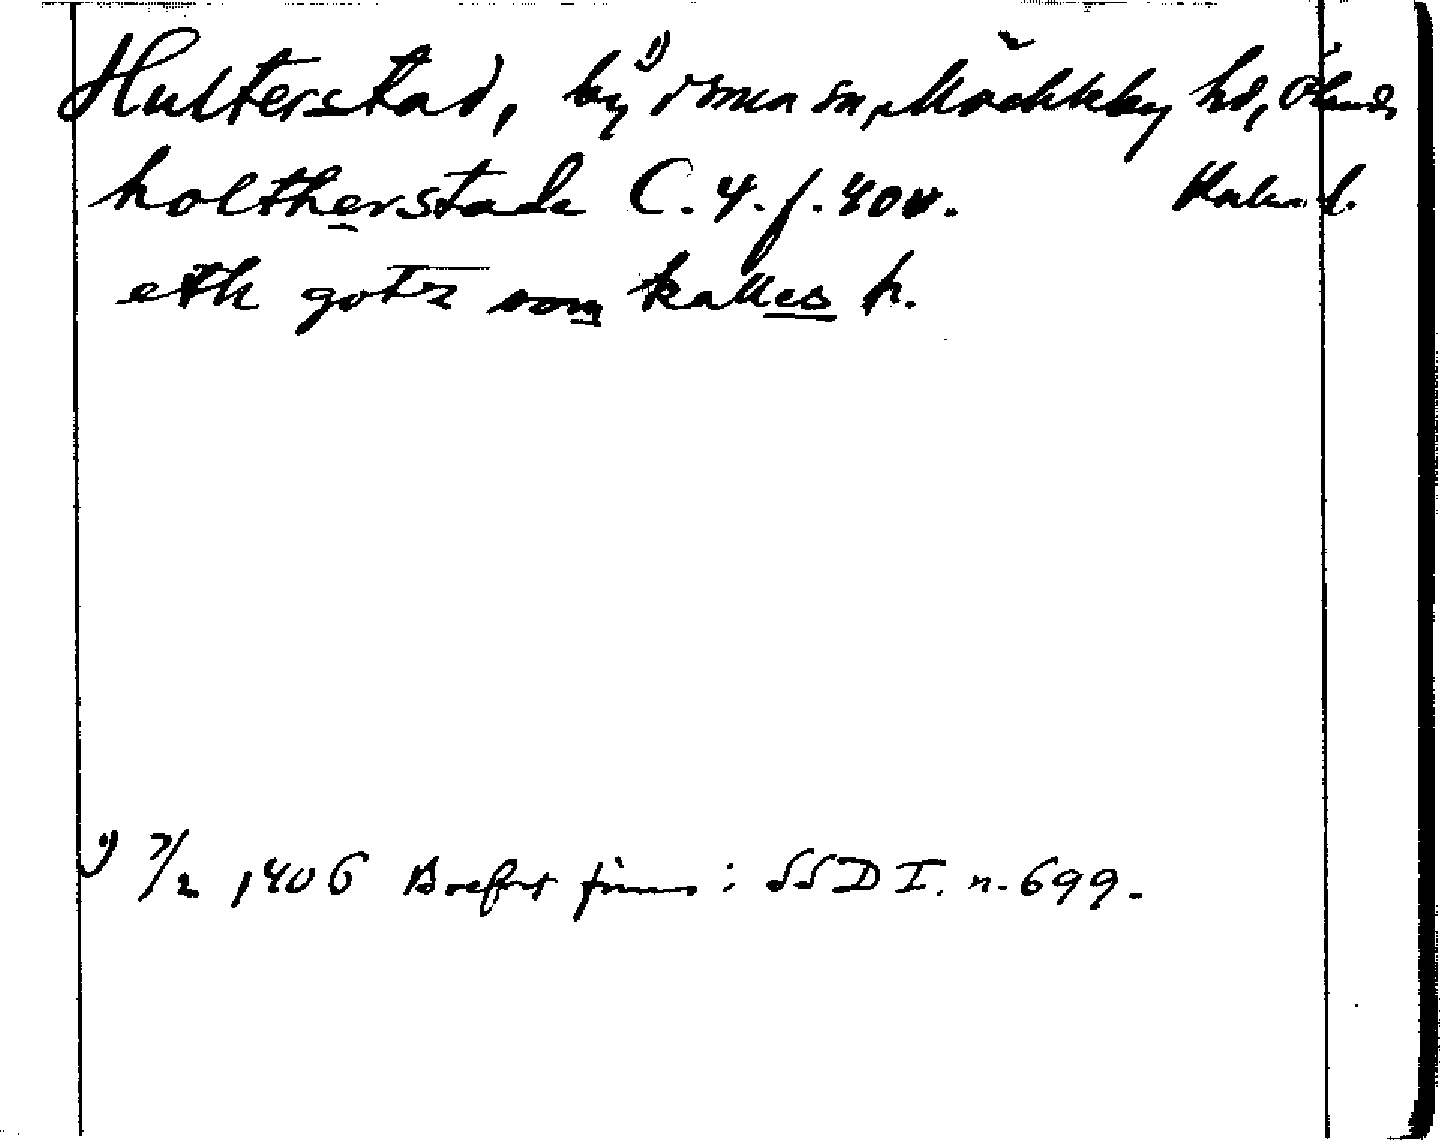 Hulterstad, by 1) i sma sn, Möckleby hd, Ölands
holtherstade C. 4. f. 40v. Kalm. l.
eth gotz som kalles h.
1) 7/2 1406 Brefvet finnes i SSD I. n. 699.